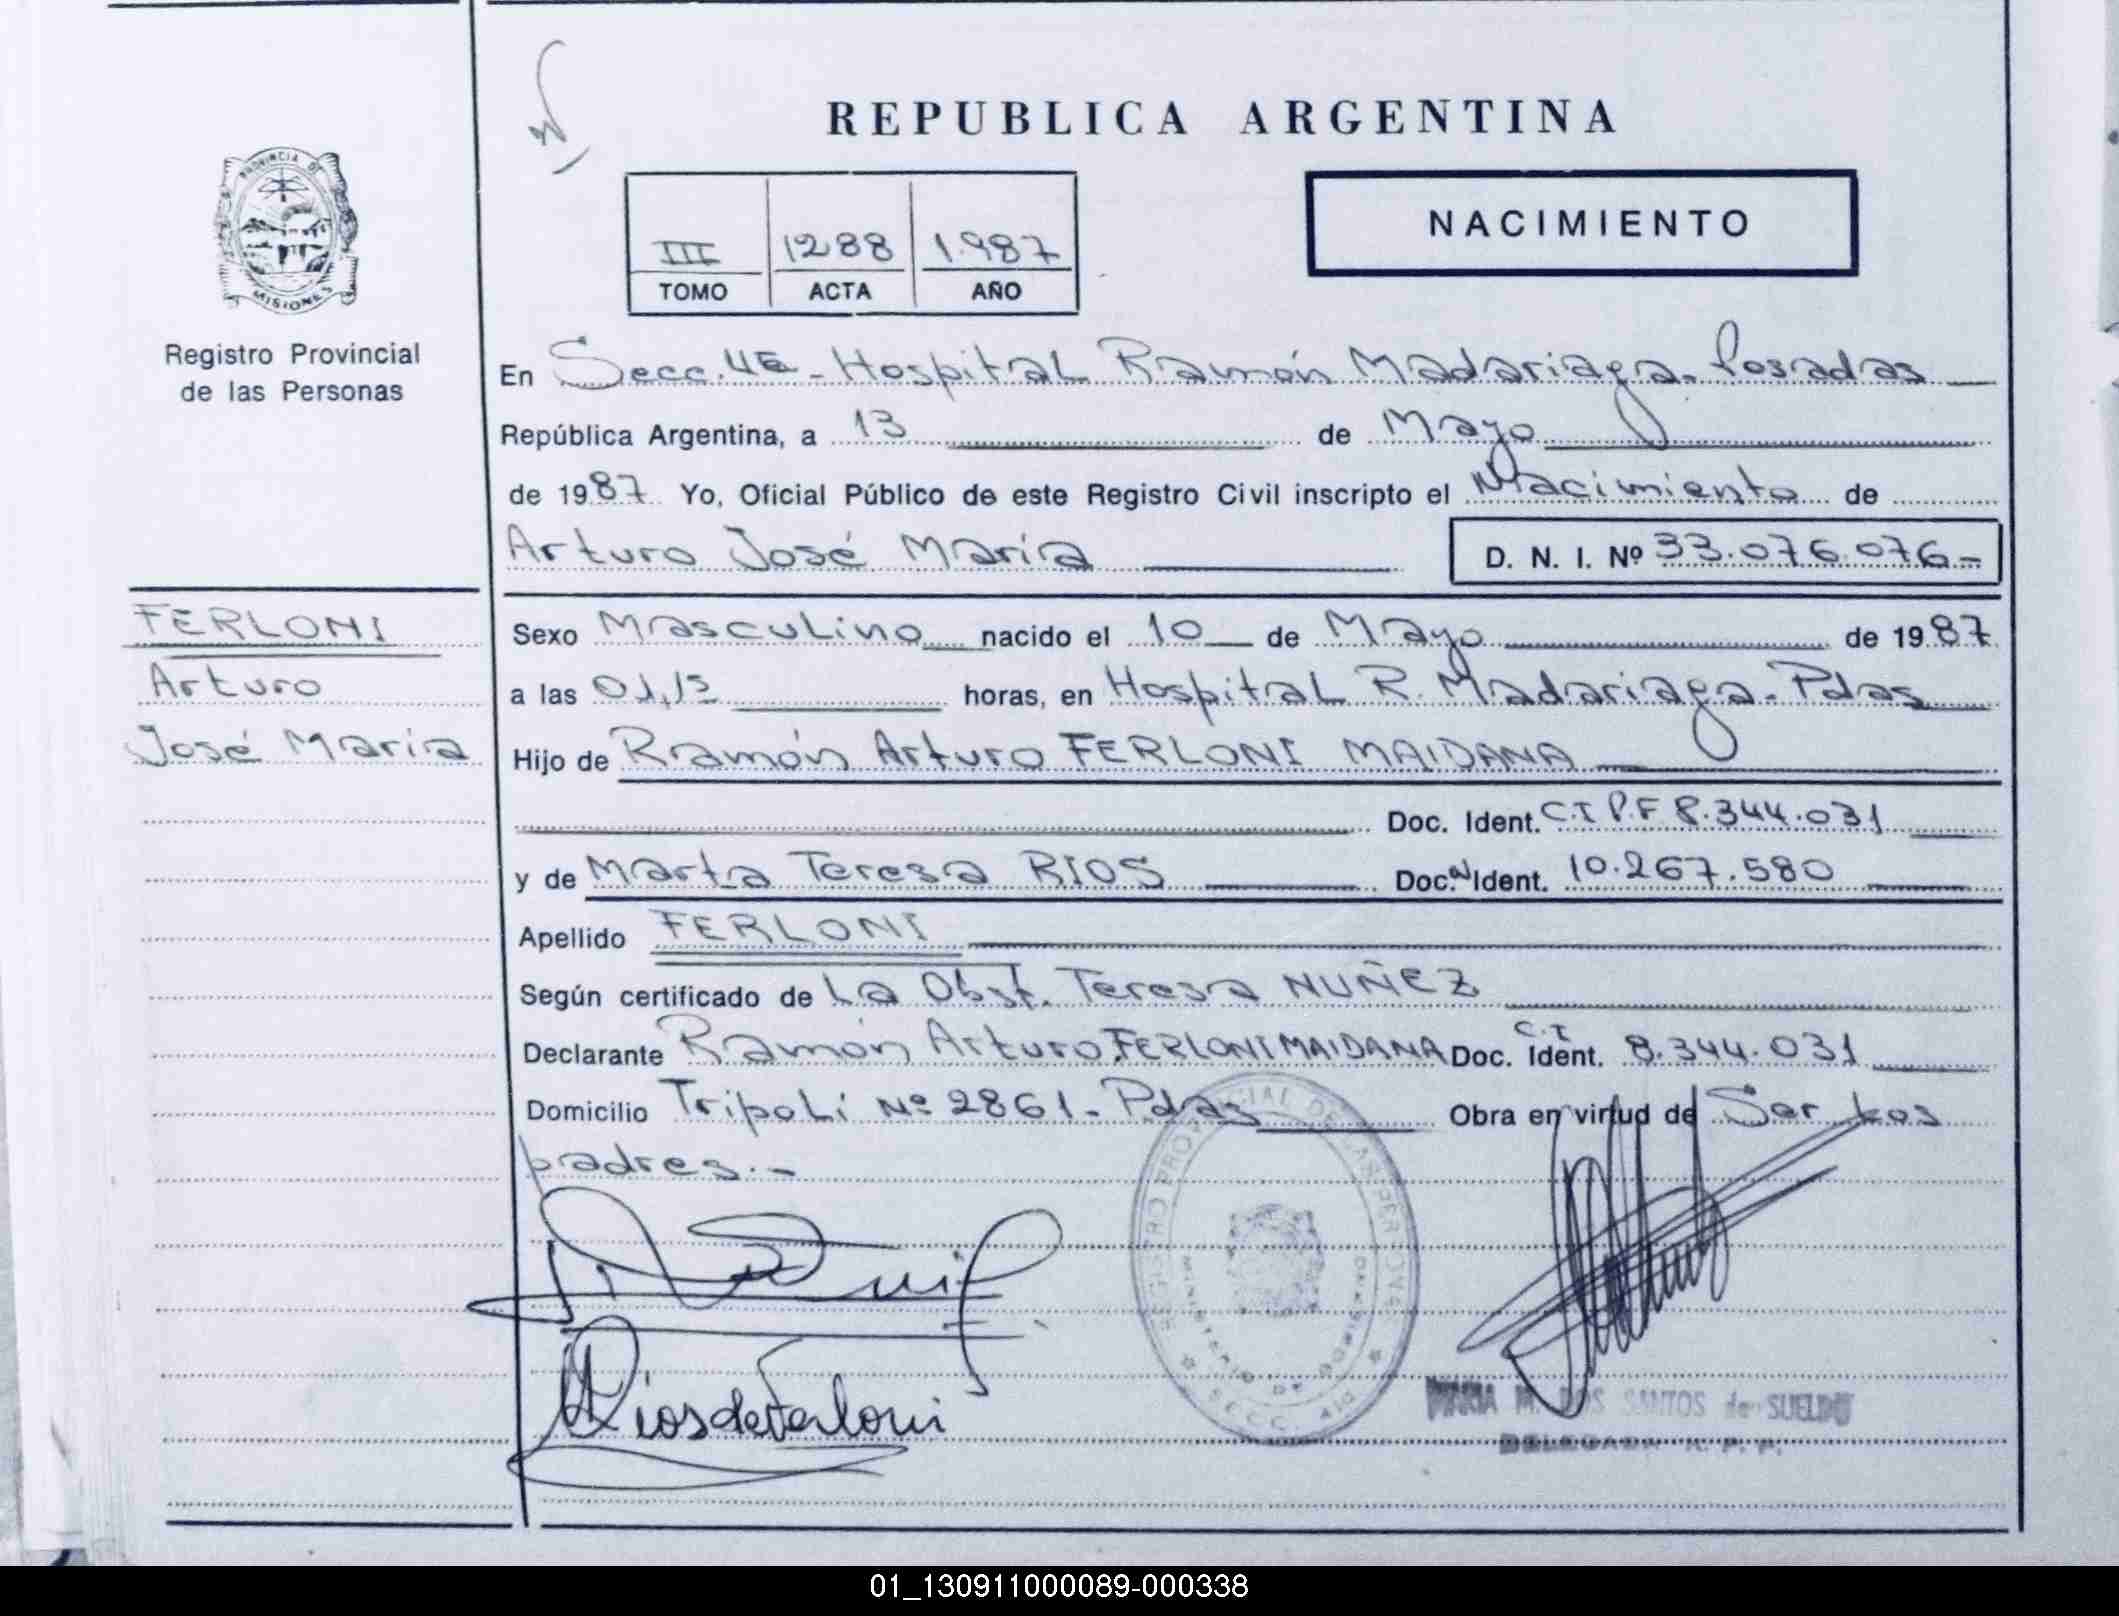 REPUBLICA ARGENTINA
PROVINCIA DE
MISIONES
Registro Provincial
de las Personas
III 1288 1.987
TOMO ACTA AÑO
NACIMIENTO
En Secc. 4ª - Hospital Ramón Madariaga. Posadas
República Argentina, a 13 de Mayo
de 1987 Yo, Oficial Público de este Registro Civil inscripto el Nacimiento de
Arturo José María D. N. I. Nº 33.076.076-
FERLONI
Arturo
José María
Sexo Masculino nacido el 10 de Mayo de 1987
a las 01,15 horas, en Hospital R. Madariaga. Pdas
Hijo de Ramón Arturo FERLONI MAIDANA
Doc. Ident. C.I P.F 8.344.031
y de Marta Teresa RIOS Doc. Ident. 10.267.580
Apellido FERLONI
Según certificado de La Obst. Teresa NUÑEZ
Declarante Ramón Arturo FERLONI MAIDANA Doc. Ident. C.I 8.344.031
Domicilio Tripoli Nº 2861 - Pdas Obra en virtud de Ser los
padres.-
REGISTRO PROVINCIAL DE LAS PERSONAS
MINISTERIO DE GOBIERNO
SECC.
Rios de Ferloni
MARIA M. DOS SANTOS de SUELDO
DELEGADA R. P. P.
01_130911000089-000338